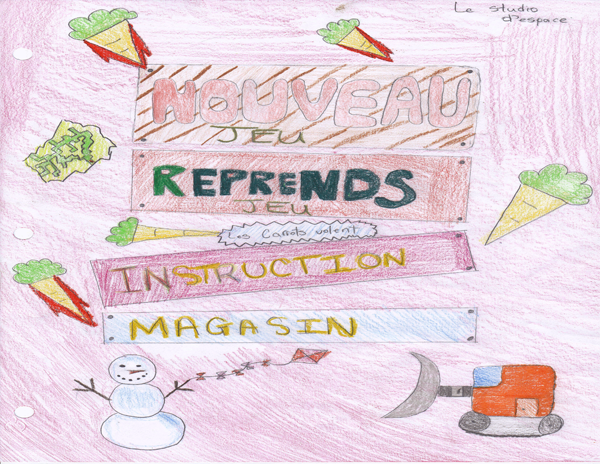 Le studio
d'espace
NOUVEAU
JEU
REPRENDS
JEU
Les Carrots volent
INSTRUCTION
MAGASIN